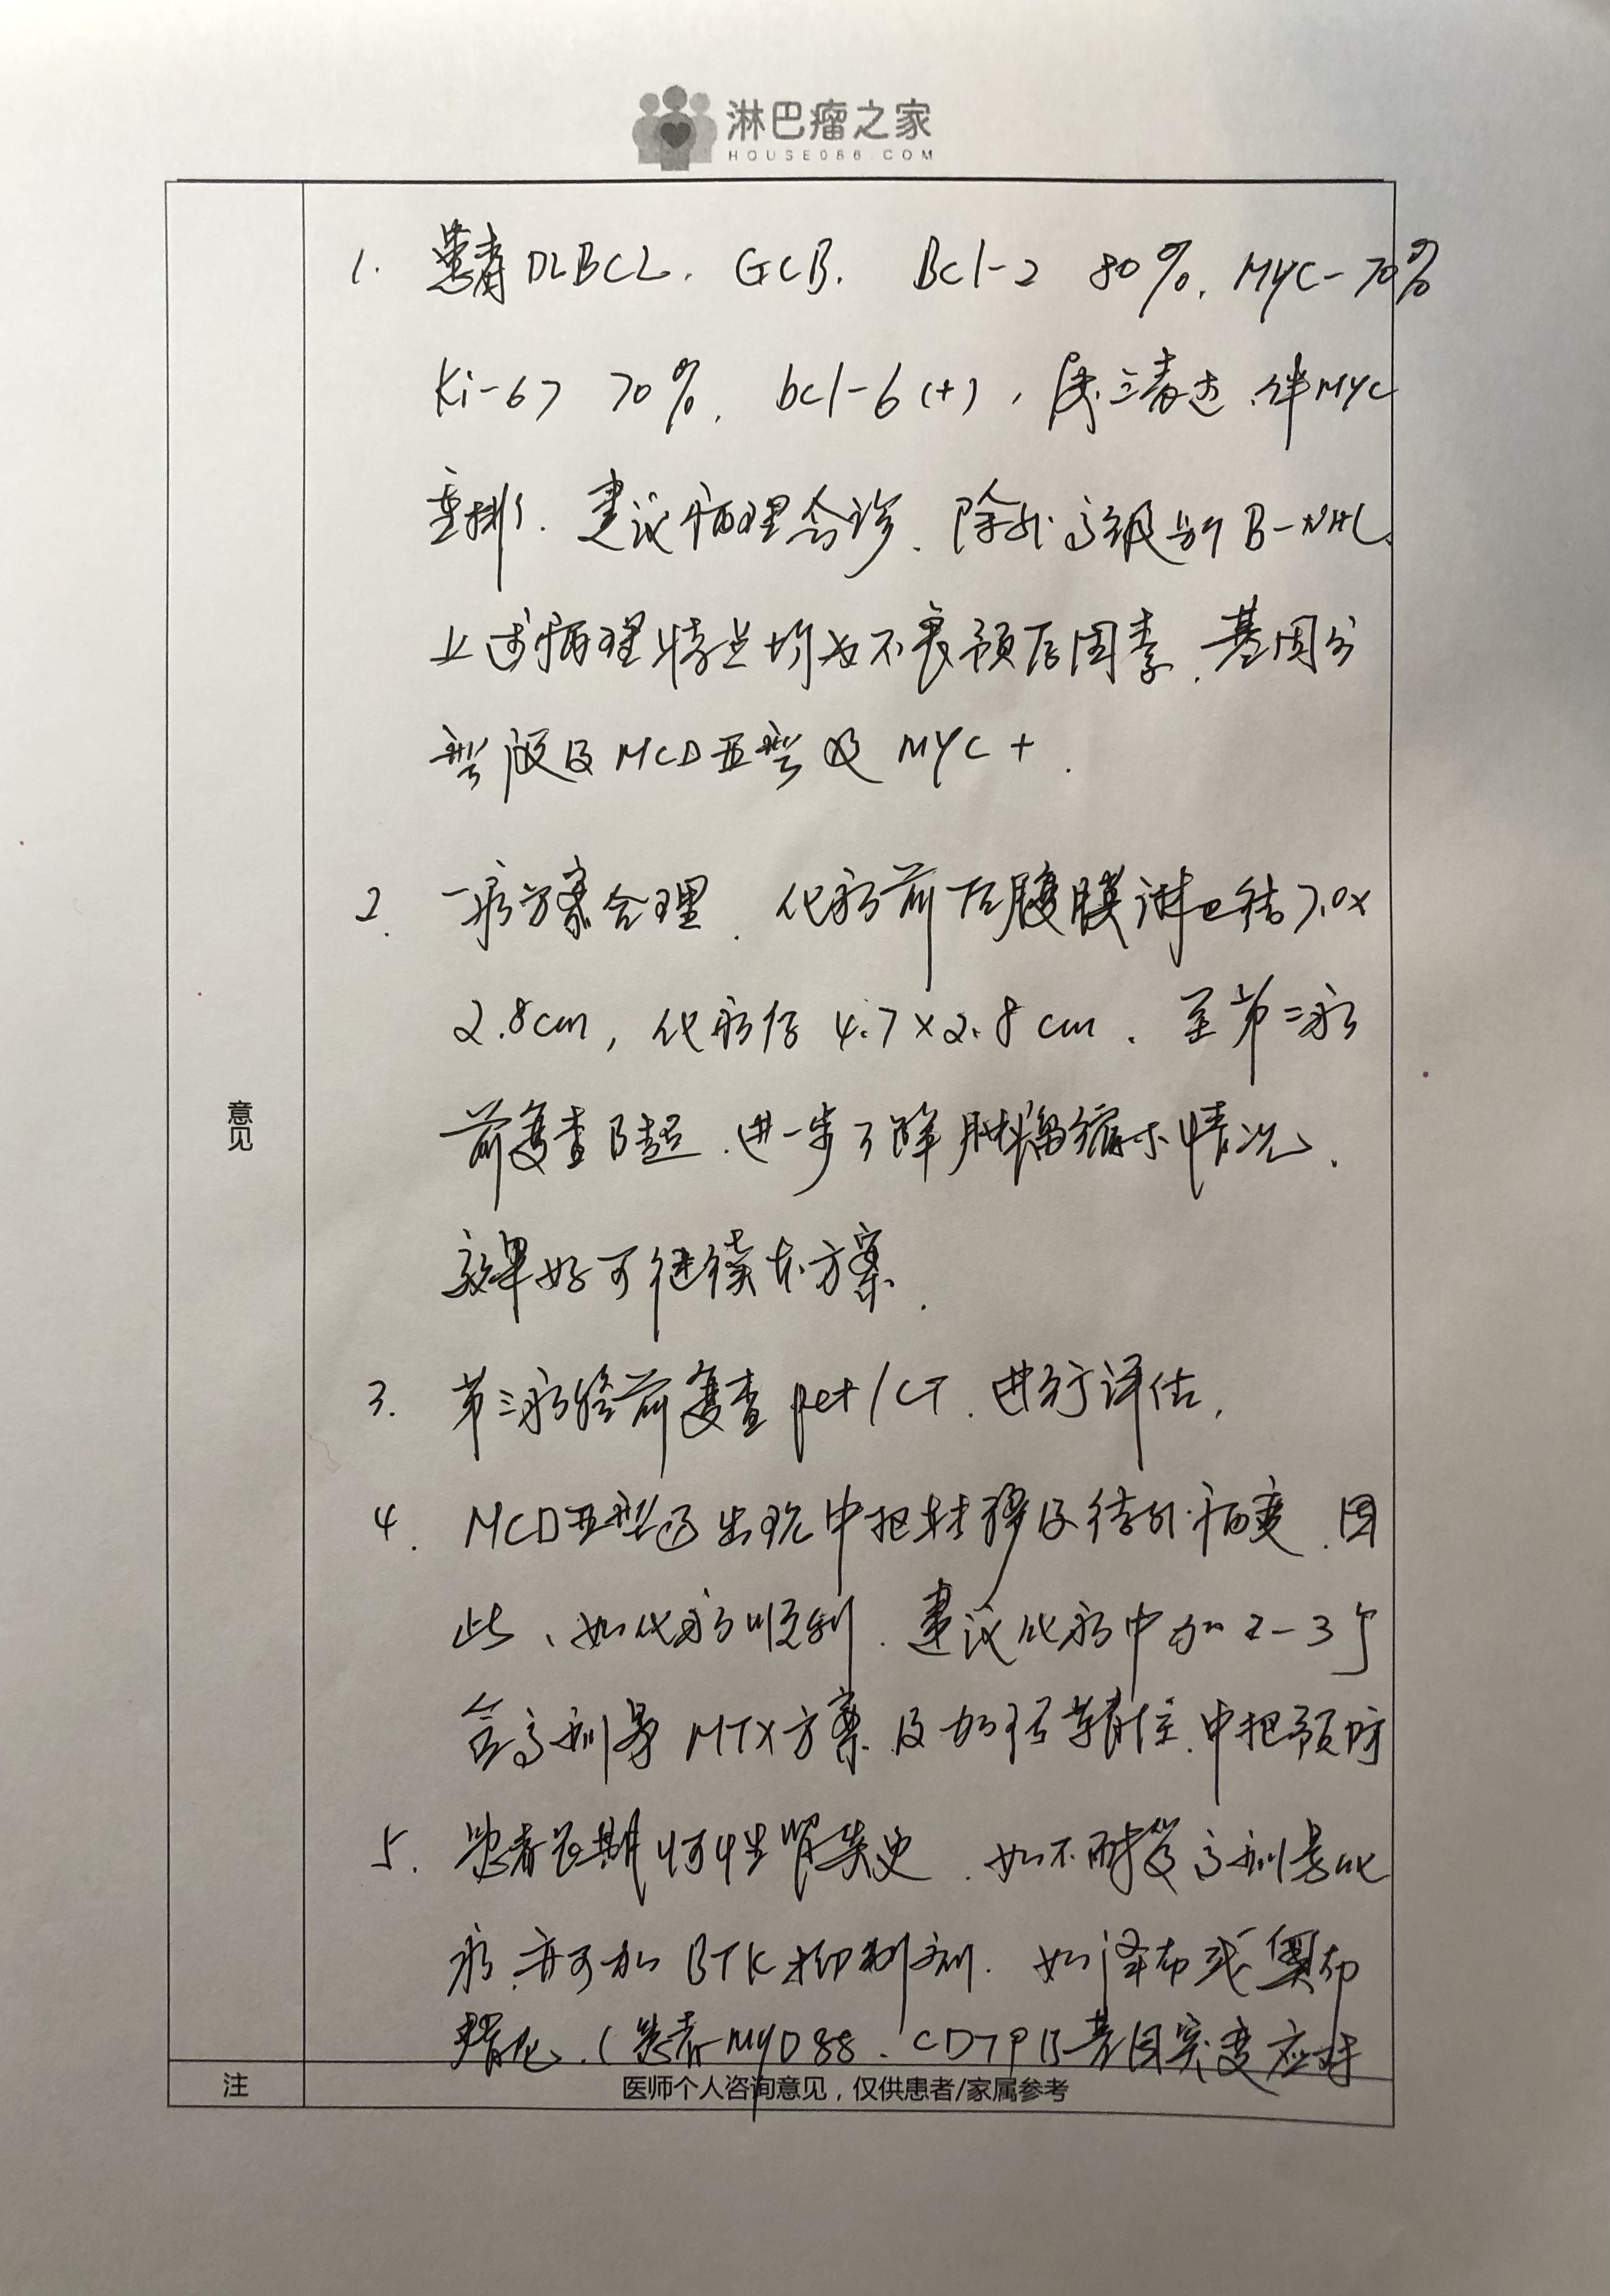 淋巴瘤之家
HOUSE086.COM
1. 患者DLBCL. GCB. Bcl-2 80%. MYC-70%
Ki-67 70%. bcl-6(+), 属三表达.伴MYC
重排. 建议病理会诊. 除外高级别B-NHL.
上述病理特点均为不良预后因素. 基因分
型涉及MCD亚型及MYC+.
2. 一疗方案合理. 化疗前后腹膜淋巴结7.0×
2.8cm, 化疗后4.7×2.8cm. 至第二疗
前复查B超.进一步了解肿瘤缩小情况.
意见
效果好可继续本方案.
3. 第三疗程前复查pet/CT.进行评估.
4. MCD亚型易出现中枢转移及结外病变.因
此、如化疗顺利.建议化疗中加2-3个
含高剂量MTX方案.及加强鞘注.中枢预防
5. 患者长期慢性肾炎史. 如不耐受高剂量化
疗.亦可加BTK抑制剂. 如泽布或奥布
替尼.(患者MYD88、CD79B基因突变应对
注
医师个人咨询意见，仅供患者/家属参考